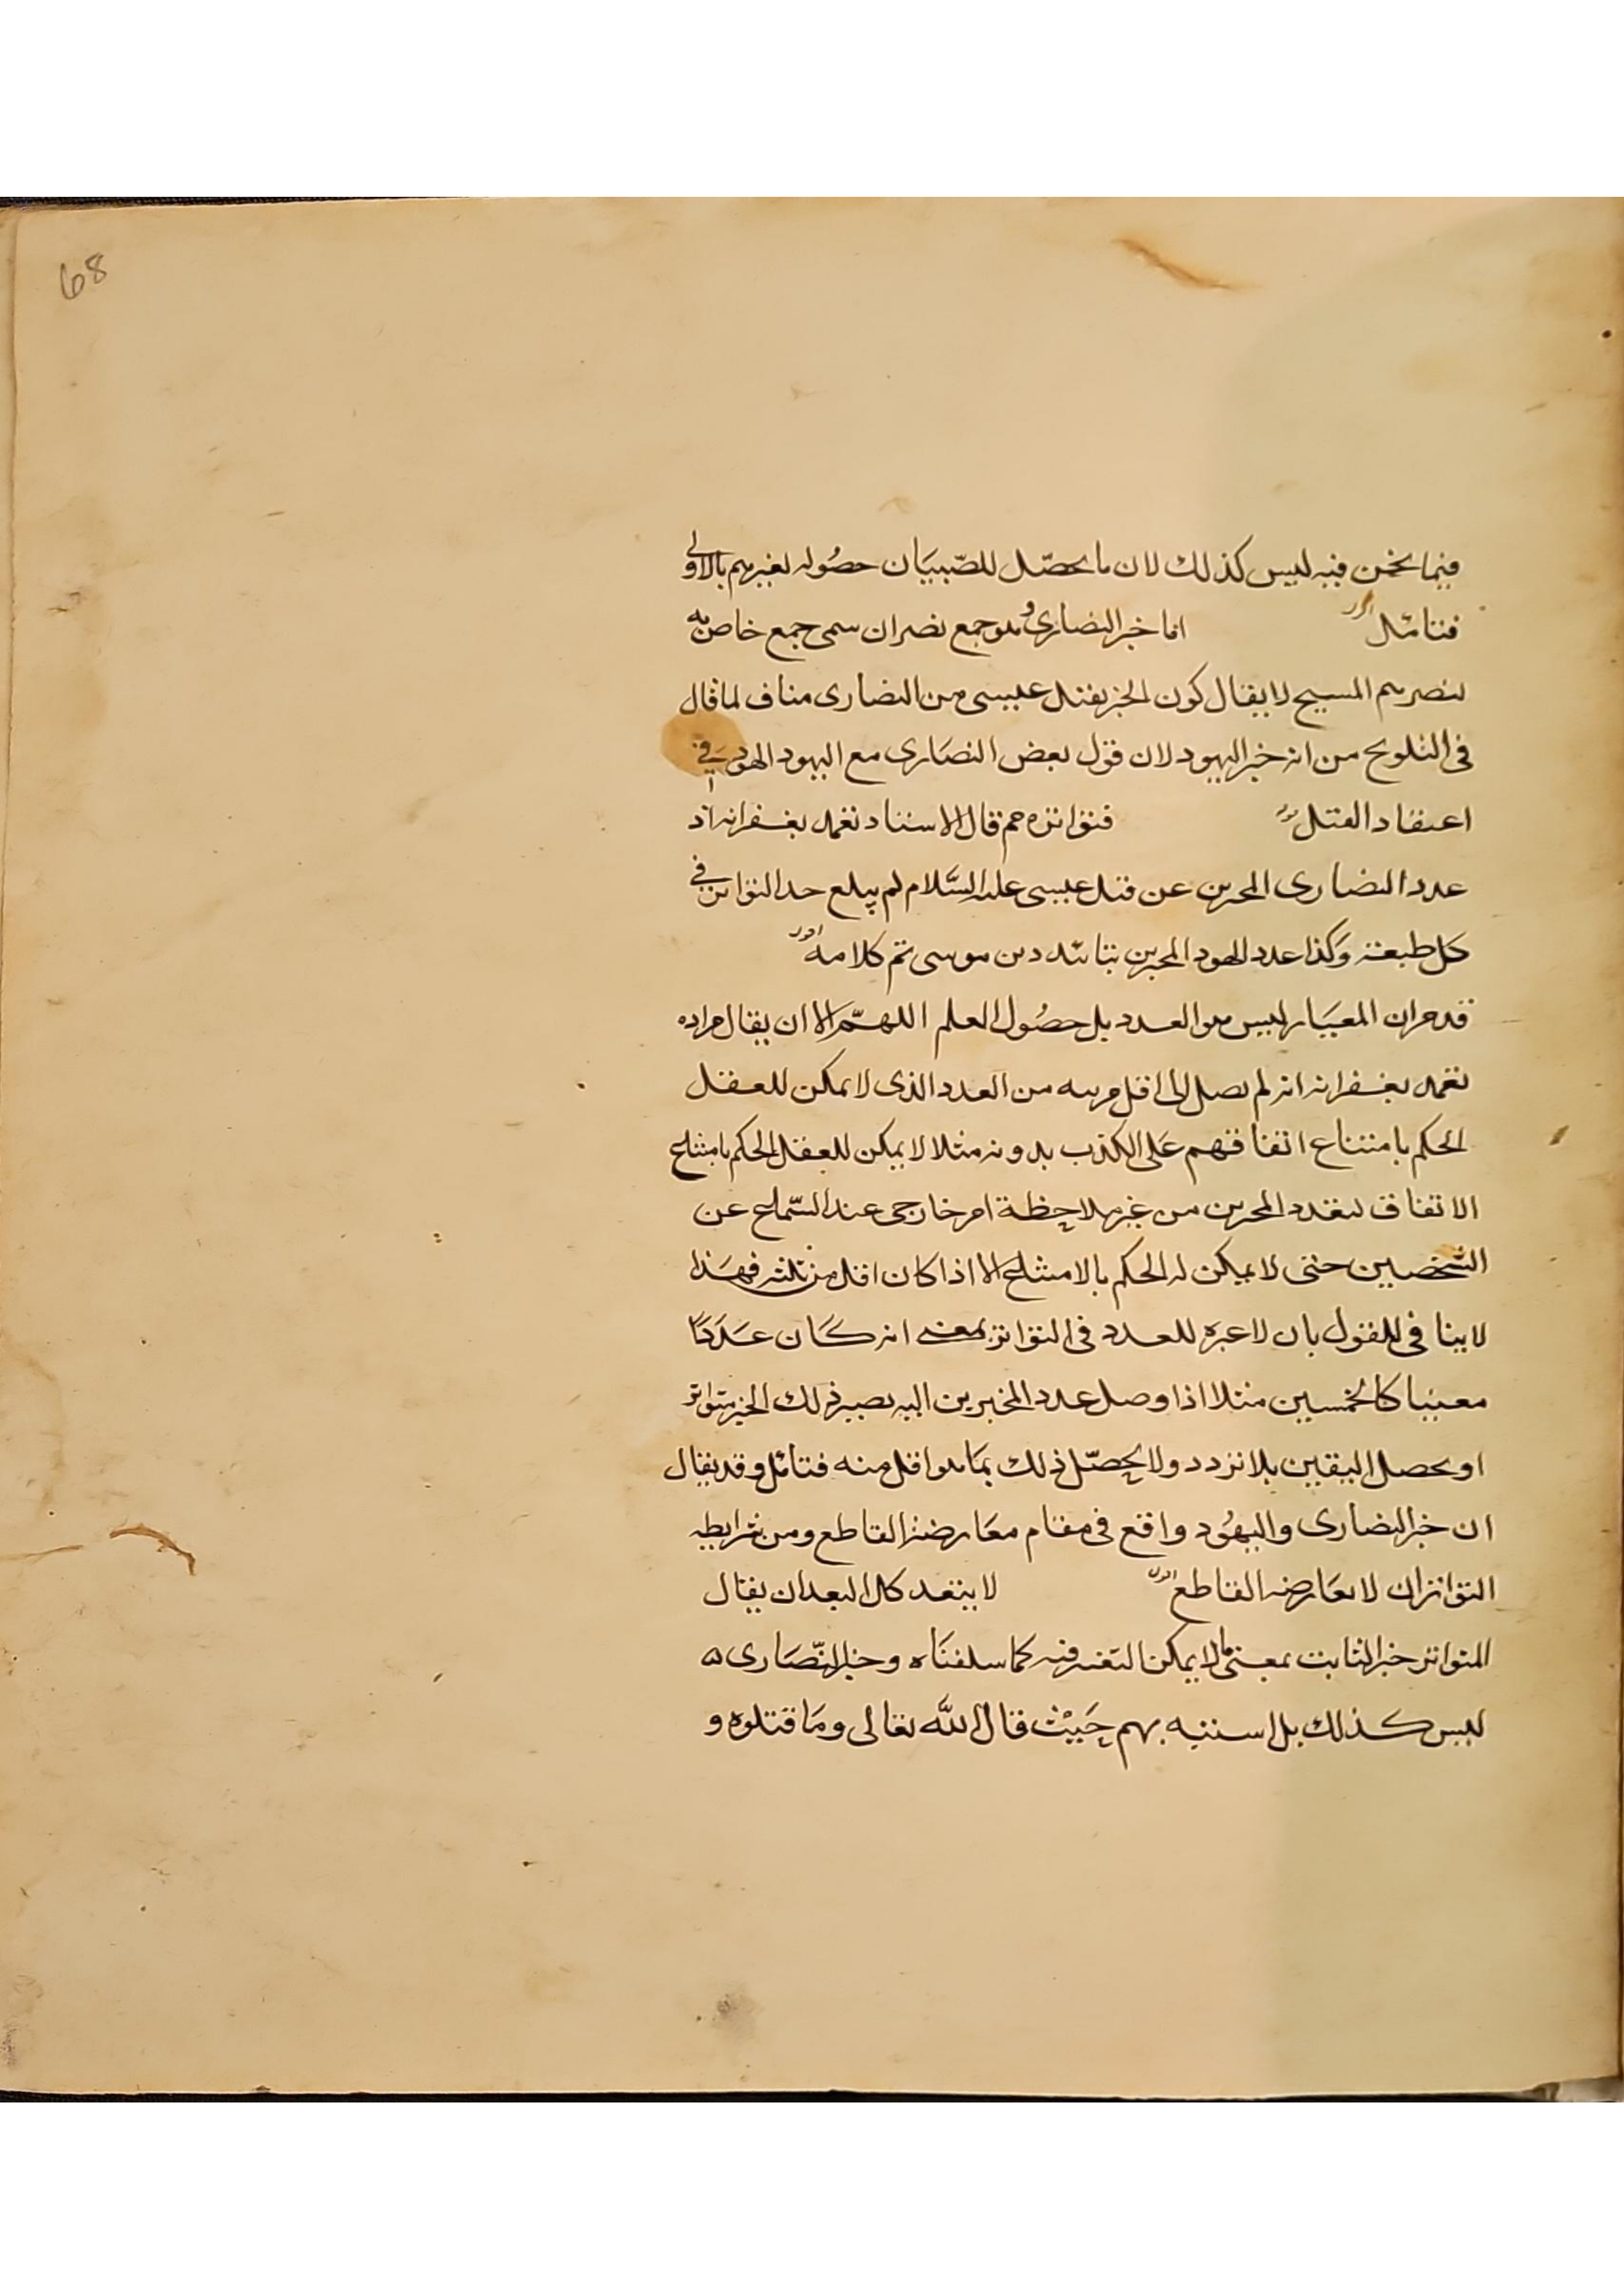 68
فيما نحن فيه ليس كذلك لان ما يحصل للصّبيَان حصُوله لغيرهم بالاولى
فتأمّل اما خبر النصارى وهو جمع نصران سمى جمع خاص به
لنصرهم المسيح لا يقال كون الخبر بقتل عيسى من النصارى مناف لما قال
فى التلويح من انه خبر اليهود لان قول بعض النصَارى مع اليهود الهود فى
اعتقاد القتل فتواتره مم قال الاستاد تغمد بغفرانه اذ
عدد النصارى المخبرين عن قتل عيسى عليه السَّلام لم يبلغ حد التواتر فى
كل طبقة وَكذا عدد الهود المخبرين بتأبّد دين موسى تم كلامه
قد مر ان المعيَار ليس هو العدد بل حصُول العلم اللهمّ الا ان يقال مراده
تغمد بغفرانه انه لم يصل الى اقل مرتبه من العدد الذى لا يمكن للعقل
الحكم بامتناع اتفاقهم عَلى الكذب بدونه مثلا لا يمكن للعقل الحكم بامتناع
الاتفاق لتعدد المخبرين من غير ملاحِظة امر خارجى عند السّماع عن
الشخصين حتى لا يمكن له الحكم بالامتناع الا اذا كان اقل من ثلثه فهَذا
لا ينافى للقول بان لا عبره للعدد فى التواتر بمعنى انه كَان عَدَدًا
معينا كالخمسين مثلا اذا وصل عدد المخبرين اليه يصير ذلك الخبر متواتر
او يحصل اليقين بلا تردد ولا يحصّل ذلك بمَا هو اقل منه فتأمّل وقد يقال
ان خبر النصارى واليهُود واقع فى مقام معَارضة القاطع ومن شرايط
التواتر ان لا يعَارضه القاطع لا يبعد كل البعد ان يقال
المتواتر خبر الثابت بمعنى ما لا يمكن التغير فيه كما سلفنَاه وخبر النّصَارى
ليس كذلك بل اشتبه بهم حَيْث قال اللَّه تعالى ومَا قتلوه و